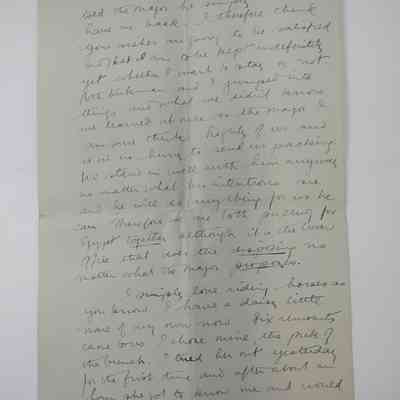 told the Major he simply
have me back. I therefore think
your makes anyway to be satisfied
and that I am to be kept indefinitely
yet whether I want to stay or not
and I jumped into
things and what we didn't know
we learned at once so the Major I
am sure thinks highly of us and
is in no hurry to send us packing.
We stand in well with him anyway
no matter what his intentions are
and he will do anything for us he
can. Therefore we are both for
Egypt together although it is the
Office that does the disposing no
matter what the Major proposes.
I simply love riding horses as
you know I have a daisy little
mare of my own now. Six remounts
came down I chose mine, the pick of
the bunch. I tried her out yesterday
for the first time and after about an
hour she got to know me and would